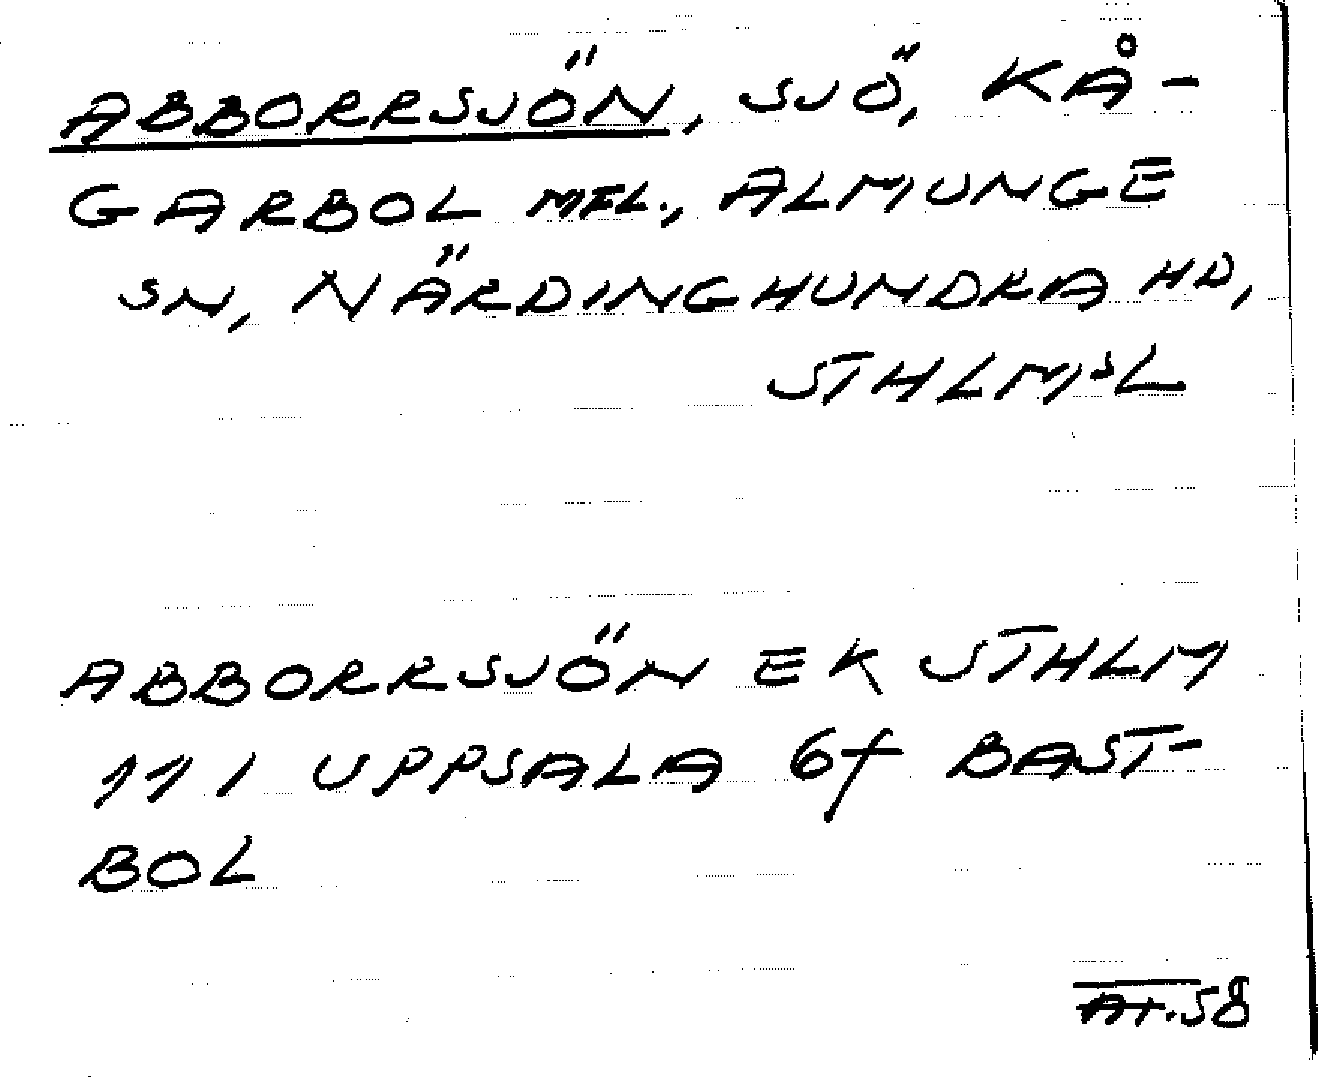 ABBORRSJÖN, SJÖ, KÅ-
GARBOL MFL., ALMUNGE
SN, NÄRDINGHUNDRA HD,
STHLMSL
ABBORRSJÖN EK STHLM
111 UPPSALA 6f BAST-
BOL
AT.58